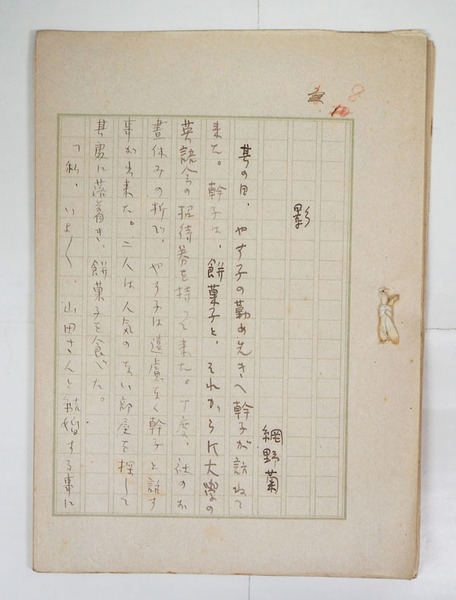 8
影
網野菊
其の日、やす子の勤め先きへ幹子が訪ねて
来た。幹子は、餅菓子と、それからK大學の
英語会の招待券を持つて来た。丁度、社のお
晝休みの折で、やす子は遠慮なく幹子と話す
事が出来た。二人は人気のない部屋を探して
其處に落着き、餅菓子を食べた。
「私、いよ〳〵、山田さんと結婚する事に